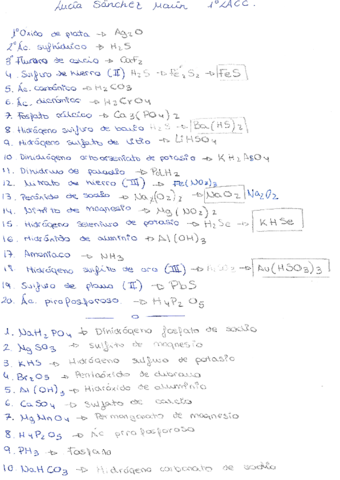 Lucía Sánchez Marín 1º BACC.
1. Óxido de plata → Ag₂O
2. Ác. sulfhídrico → H₂S
3. Fluoruro de calcio → CaF₂
4. Sulfuro de hierro (II) H₂S → Fe₂S₂ → FeS
5. Ác. carbónico → H₂CO₃
6. Ác. dicrómico → H₂CrO₄
7. Fosfato cálcico → Ca₃(PO₄)₂
8. Hidrógeno sulfuro de bario → Ba(HS)₂
9. Hidrógeno sulfato de litio → LiHSO₄
10. Dihidrógeno de potasio → KH₂AsO₄
11. de → PdH₂
12. Nitrato de hierro (III) → Fe(NO₃)₃
13. Peróxido de sodio → Na₂(O₂)₂ → NaO₂ Na₂O₂
14. Nitrito de magnesio → Mg(NO₂)₂
15. Hidrógeno seleniuro de potasio → H₂Se → KHSe
16. Hidróxido de aluminio → Al(OH)₃
17. Amoniaco → NH₃
18. Hidrógeno sulfito de oro (III) → Au(HSO₃)₃
19. Sulfuro de plomo (II) → PbS
20. Ác. pirofosforoso → H₄P₂O₅
1. NaH₂PO₄ → Dihidrógeno fosfato de sodio
2. MgSO₃ → sulfito de magnesio
3. KHS → Hidrógeno sulfuro de potasio
4. Br₂O₅ → Pentaóxido de
5. Al(OH)₃ → Hidróxido de aluminio
6. CaSO₄ → Sulfato de calcio
7. MgMnO₄ → Permanganato de magnesio
8. H₄P₂O₅ → Ác pirofosforoso
9. PH₃ → Fosfano
10. NaHCO₃ → Hidrógeno carbonato de sodio